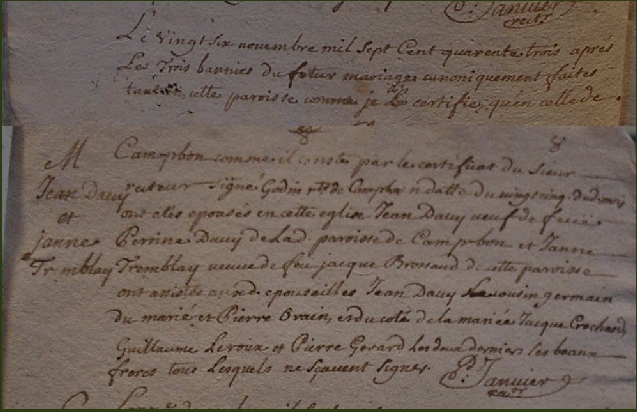 P: Janvier
rect.r
Le vingt six novembre mil sept Cent quarente trois après
Les trois bannies du futur mariage canoniquement faites
tant en cette paroisse comme je Le certifie, qu'en celle de
M
Jean Davy
et
janne
Tremblay
Campbon comme il conste par le certificat du Sieur
recteur signé Godin de Campbon datté du vingt cinq dud. mois
ont etes epousés en cette eglise Jean Davy veuf de feüe
Perrine Davy de Lad. paroisse de Campbon et Janne
Tremblay veuve de feu jacque Brossaud de cette paroisse
ont assistés auxd. epousailles Jean Davy cousin germain
du marié et Pierre Orain, et du coté de la mariée Jacque Crochard
Guillaume Leroux et Pierre Gerard Les deux derniers ses beaux
freres tous Lesquels ne sçavent signer.
P: Janvier
rect.r